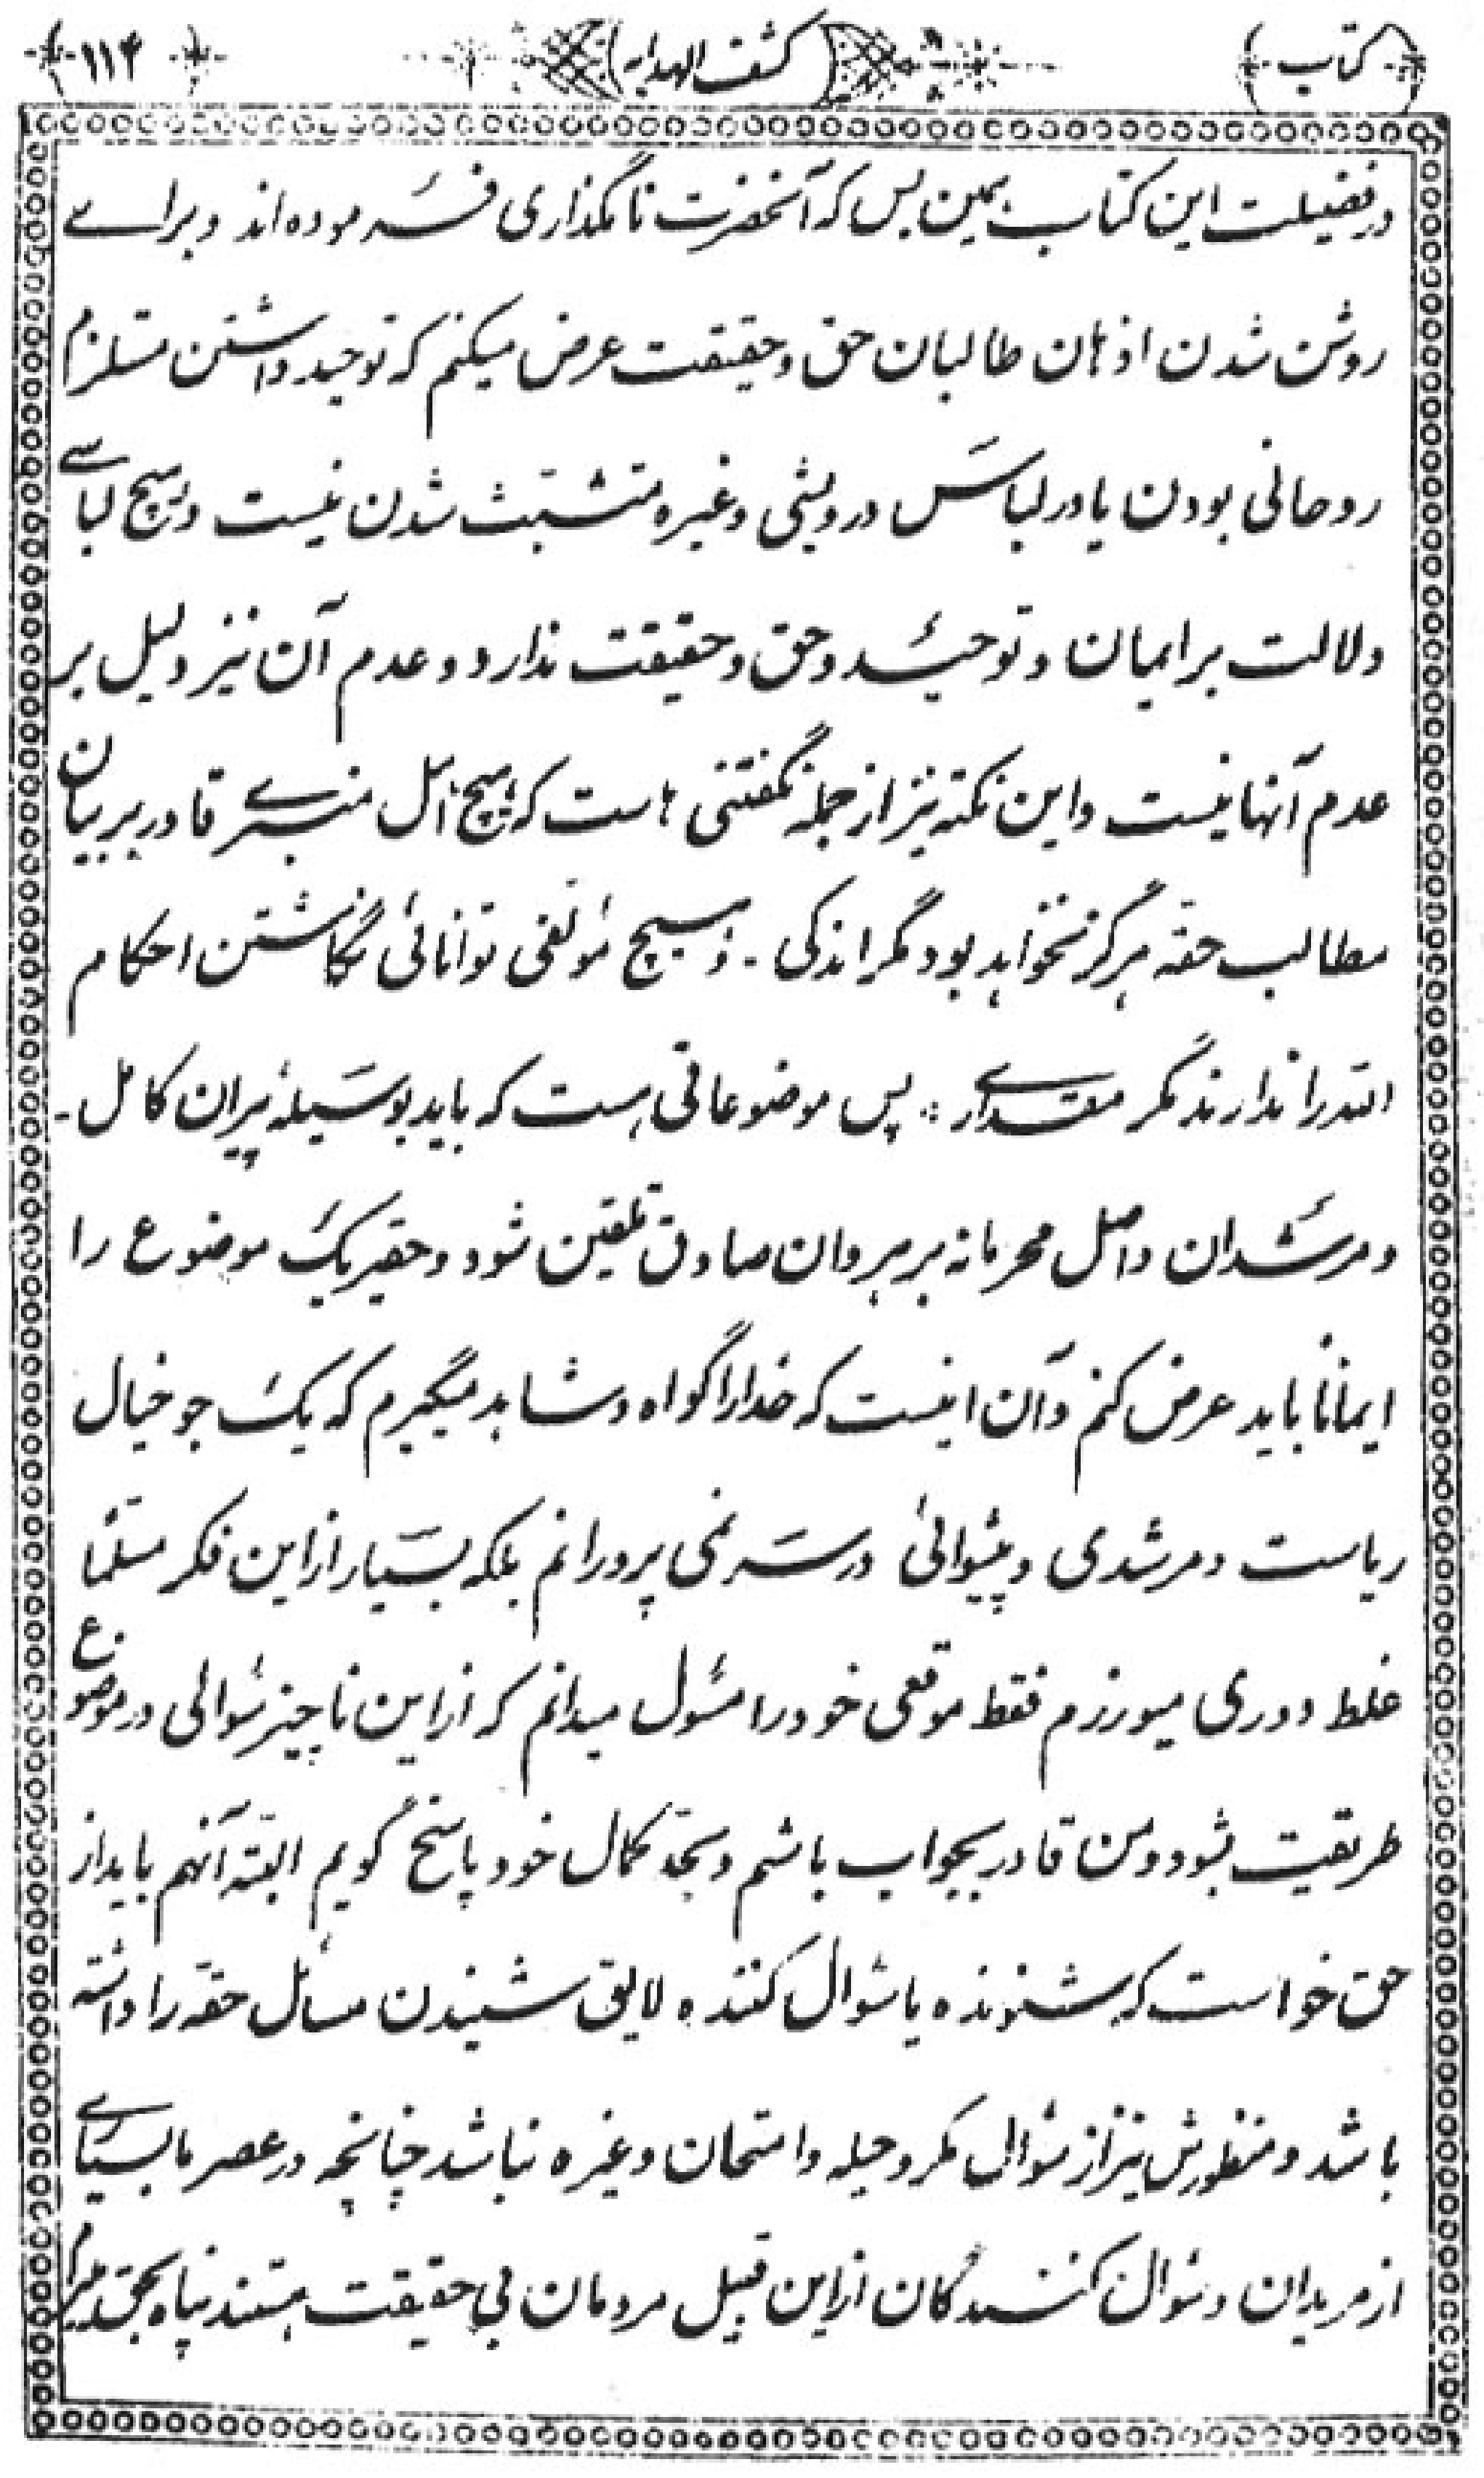 کتاب کشف الهدایه ۱۱۴
در فضیلت این کتاب همین بس که آنحضرت نامگذاری فرموده‌اند و برای
روشن شدن اذهان طالبان حق و حقیقت عرض میکنم که توحید داشتن مستلزم
روحانی بودن یا در لباس درویشی و غیره متشبث شدن نیست و هیچ لباسی
دلالت بر ایمان و توحید و حق و حقیقت ندارد و عدم آن نیز دلیل بر
عدم آنها نیست و این نکته نیز از جمله نگفتنی هاست که هیچ اهل منبری قادر بر بیان
مطالب حقه هرگز نخواهد بود مگر اندکی - و هیچ مؤلفی توانائی نگاشتن احکام
الله را ندارند مگر مقداری ؞ پس موضوعاتی هست که باید بوسیله پیران کامل -
و مرشدان واصل محرمانه بر رهروان صادق تلقین شود و حقیر یک موضوع را
ایمانًا باید عرض کنم و آن اینست که خدا را گواه و شاهد میگیرم که یک جو خیال
ریاست و مرشدی و پیشوائی در سر نمی پرورانم بلکه بسیار از این فکر مسلّمًا
غلط دوری میورزم فقط موقعی خود را مسئول میدانم که از این ناچیز سؤالی در موضوع
طریقت بشود و من قادر بجواب باشم و بحدّ کمال خود پاسخ گویم البتّه آنهم باید از
حق خواست که شنونده یا سؤال کننده لایق شنیدن مسائل حقّه را داشته
باشد و منظورش نیز از سؤال مکر و حیله و امتحان و غیره نباشد چنانچه در عصر ما بسیاری
از مریدان و سؤال کنندگان از این قبیل مردمان بی حقیقت هستند پناه بحق میبرم